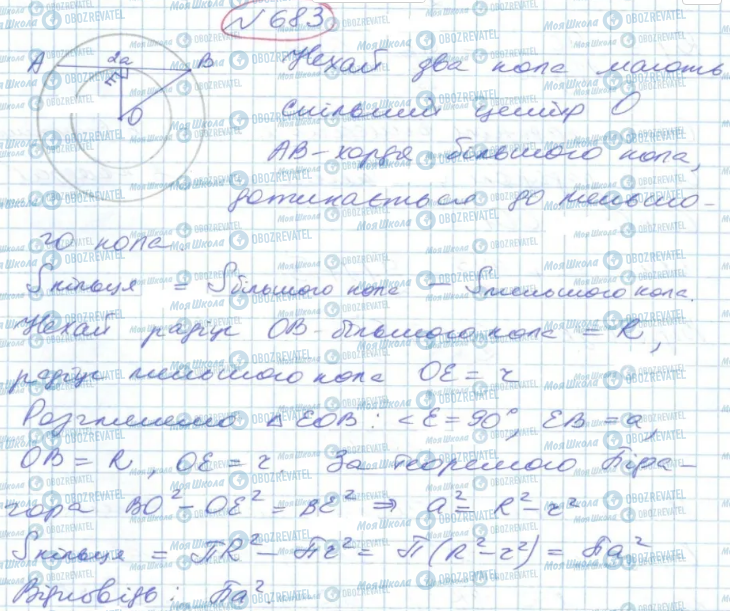 № 683
A 2a B
E
O
Нехай два кола мають
спільний центр O
AB - хорда більшого кола,
дотикається до меньшо-
го кола.
Sкільця = Sбільшого кола - Sменьшого кола.
Нехай радіус OB - більшого кола = R,
радіус меньшого кола OE = r
Розглянемо △EOB : <E = 90°, EB = a,
OB = R, OE = r. За теоремою Піфа-
гора BO² - OE² = BE² ⇒ a² = R² - r²
Sкільця = ПR² - Пr² = П(R² - r²) = Пa²
Відповідь: Пa².
МояШкола OBOZREVATEL